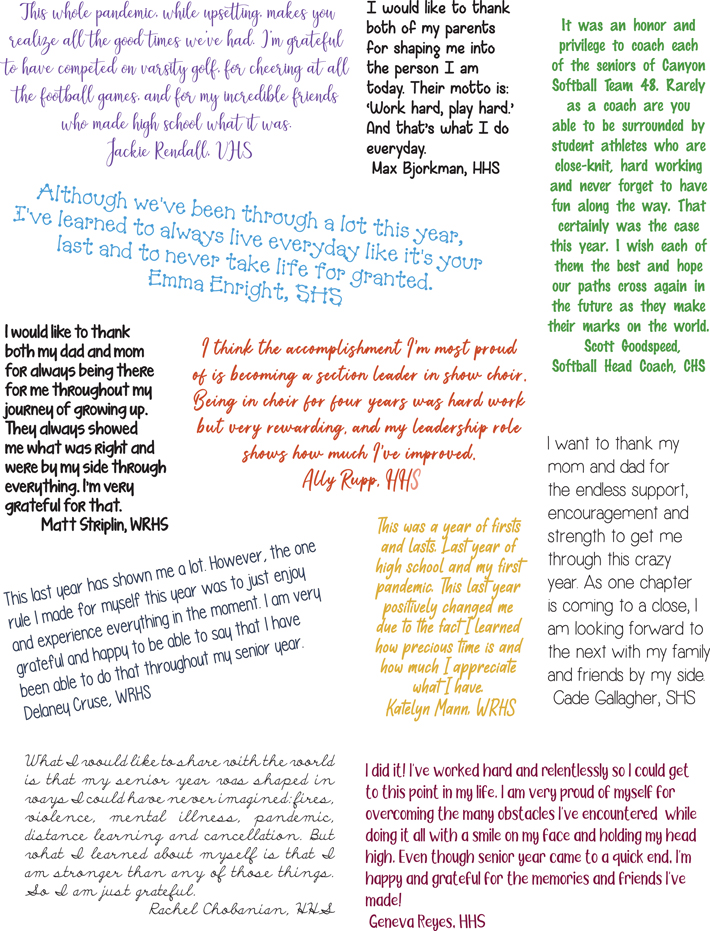 This whole pandemic, while upsetting, makes you
realize all the good times we've had. I'm grateful
to have competed on varsity golf, for cheering at all
the football games, and for my incredible friends
who made high school what it was.
Jackie Rendall, VHS
I would like to thank
both of my parents
for shaping me into
the person I am
today. Their motto is:
‘Work hard, play hard.’
And that's what I do
everyday.
Max Bjorkman, HHS
It was an honor and
privilege to coach each
of the seniors of Canyon
Softball Team 48. Rarely
as a coach are you
able to be surrounded by
student athletes who are
close-knit, hard working
and never forget to have
fun along the way. That
certainly was the case
this year. I wish each of
them the best and hope
our paths cross again in
the future as they make
their marks on the world.
Scott Goodspeed,
Softball Head Coach, CHS
Although we've been through a lot this year,
I've learned to always live everyday like it's your
last and to never take life for granted.
Emma Enright, SHS
I would like to thank
both my dad and mom
for always being there
for me throughout my
journey of growing up.
They always showed
me what was right and
were by my side through
everything. I'm very
grateful for that.
Matt Striplin, WRHS
I think the accomplishment I'm most proud
of is becoming a section leader in show choir.
Being in choir for four years was hard work
but very rewarding, and my leadership role
shows how much I've improved.
Ally Rupp, HHS
I want to thank my
mom and dad for
the endless support,
encouragement and
strength to get me
through this crazy
year. As one chapter
is coming to a close, I
am looking forward to
the next with my family
and friends by my side.
Cade Gallagher, SHS
This last year has shown me a lot. However, the one
rule I made for myself this year was to just enjoy
and experience everything in the moment. I am very
grateful and happy to be able to say that I have
been able to do that throughout my senior year.
Delaney Cruse, WRHS
This was a year of firsts
and lasts. Last year of
high school and my first
pandemic. This last year
positively changed me
due to the fact I learned
how precious time is and
how much I appreciate
what I have.
Katelyn Mann, WRHS
What I would like to share with the world
is that my senior year was shaped in
ways I could have never imagined:fires,
violence, mental illness, pandemic,
distance learning and cancellation. But
what I learned about myself is that I
am stronger than any of those things.
So I am just grateful.
Rachel Chobanian, HHS
I did it! I've worked hard and relentlessly so I could get
to this point in my life. I am very proud of myself for
overcoming the many obstacles I've encountered while
doing it all with a smile on my face and holding my head
high. Even though senior year came to a quick end, I'm
happy and grateful for the memories and friends I've
made!
Geneva Reyes, HHS